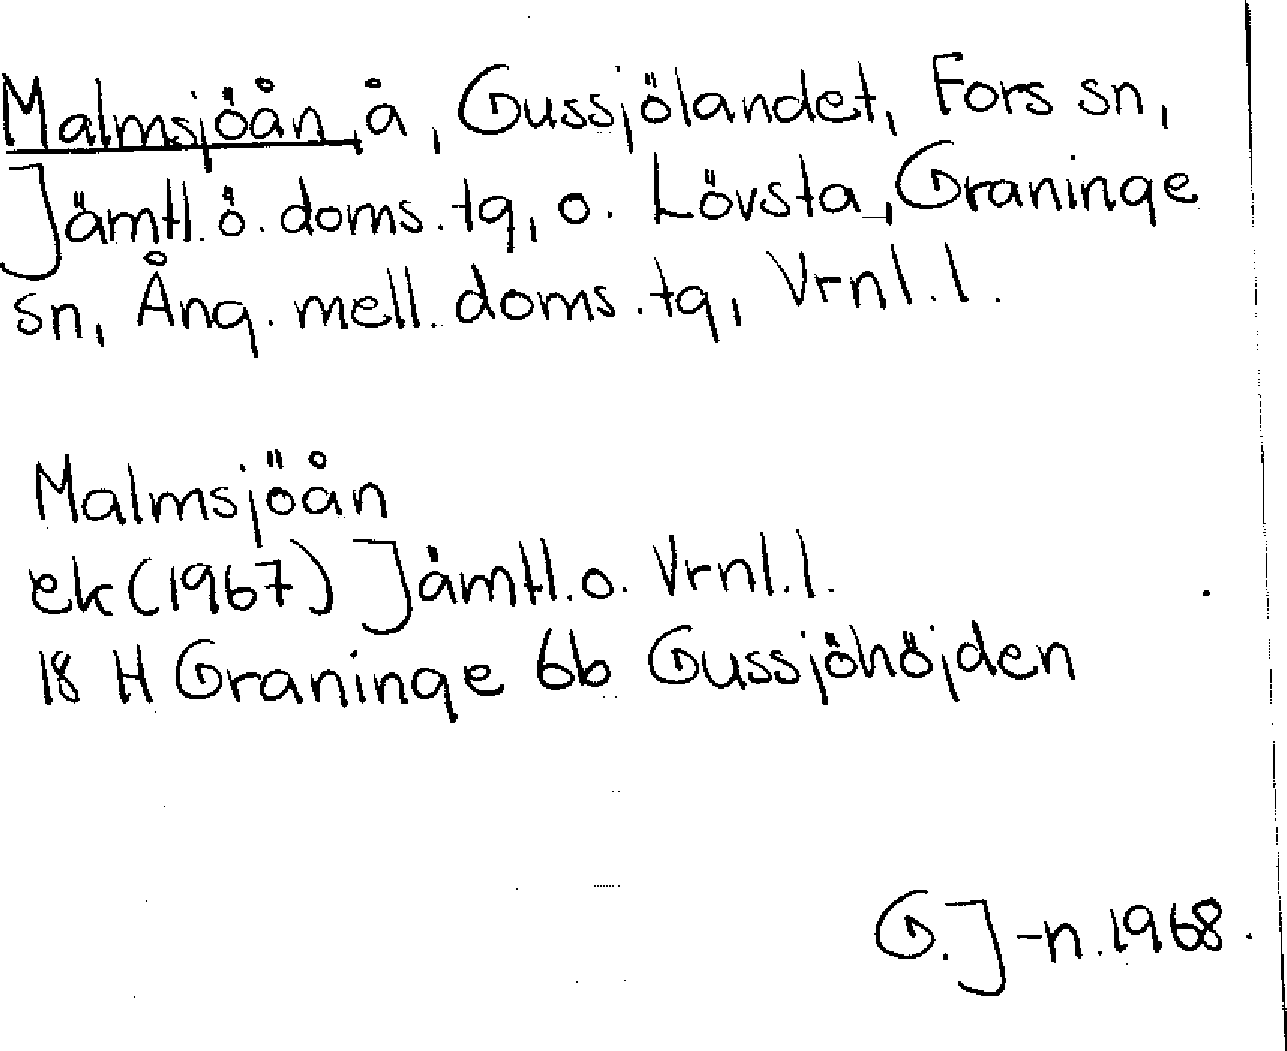 Malmsjöån, å, Gussjölandet, Fors sn,
Jämtl. ö. doms. tg, o. Lövsta, Graninge
sn, Ång. mell. doms. tg, Vrnl. l.
Malmsjöån
ek (1967) Jämtl. o. Vrnl. l.
18 H Graninge 6b Gussjöhöjden
G. J-n. 1968.